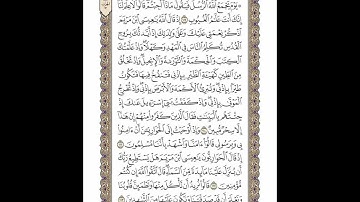 يَوْمَ يَجْمَعُ ٱللَّهُ ٱلرُّسُلَ فَيَقُولُ مَاذَآ أُجِبْتُمْ قَالُوا۟ لَا عِلْمَ لَنَآ
إِنَّكَ أَنتَ عَلَّٰمُ ٱلْغُيُوبِ إِذْ قَالَ ٱللَّهُ يَٰعِيسَى ٱبْنَ مَرْيَمَ
ٱذْكُرْ نِعْمَتِى عَلَيْكَ وَعَلَىٰ وَٰلِدَتِكَ إِذْ أَيَّدتُّكَ بِرُوحِ
ٱلْقُدُسِ تُكَلِّمُ ٱلنَّاسَ فِى ٱلْمَهْدِ وَكَهْلًا وَإِذْ عَلَّمْتُكَ
ٱلْكِتَٰبَ وَٱلْحِكْمَةَ وَٱلتَّوْرَىٰةَ وَٱلْإِنجِيلَ وَإِذْ تَخْلُقُ
مِنَ ٱلطِّينِ كَهَيْـَٔةِ ٱلطَّيْرِ بِإِذْنِى فَتَنفُخُ فِيهَا فَتَكُونُ
طَيْرًۢا بِإِذْنِى وَتُبْرِئُ ٱلْأَكْمَهَ وَٱلْأَبْرَصَ بِإِذْنِى وَإِذْ تُخْرِجُ
ٱلْمَوْتَىٰ بِإِذْنِى وَإِذْ كَفَفْتُ بَنِىٓ إِسْرَٰٓءِيلَ عَنكَ إِذْ
جِئْتَهُم بِٱلْبَيِّنَٰتِ فَقَالَ ٱلَّذِينَ كَفَرُوا۟ مِنْهُمْ إِنْ هَٰذَآ
إِلَّا سِحْرٌ مُّبِينٌ وَإِذْ أَوْحَيْتُ إِلَى ٱلْحَوَارِيِّـۧنَ أَنْ ءَامِنُوا۟
بِى وَبِرَسُولِى قَالُوٓا۟ ءَامَنَّا وَٱشْهَدْ بِأَنَّنَا مُسْلِمُونَ
إِذْ قَالَ ٱلْحَوَارِيُّونَ يَٰعِيسَى ٱبْنَ مَرْيَمَ هَلْ يَسْتَطِيعُ رَبُّكَ
أَن يُنَزِّلَ عَلَيْنَا مَآئِدَةً مِّنَ ٱلسَّمَآءِ قَالَ ٱتَّقُوا۟ ٱللَّهَ إِن كُنتُم
مُّؤْمِنِينَ قَالُوا۟ نُرِيدُ أَن نَّأْكُلَ مِنْهَا وَتَطْمَئِنَّ قُلُوبُنَا
وَنَعْلَمَ أَن قَدْ صَدَقْتَنَا وَنَكُونَ عَلَيْهَا مِنَ ٱلشَّٰهِدِينَ